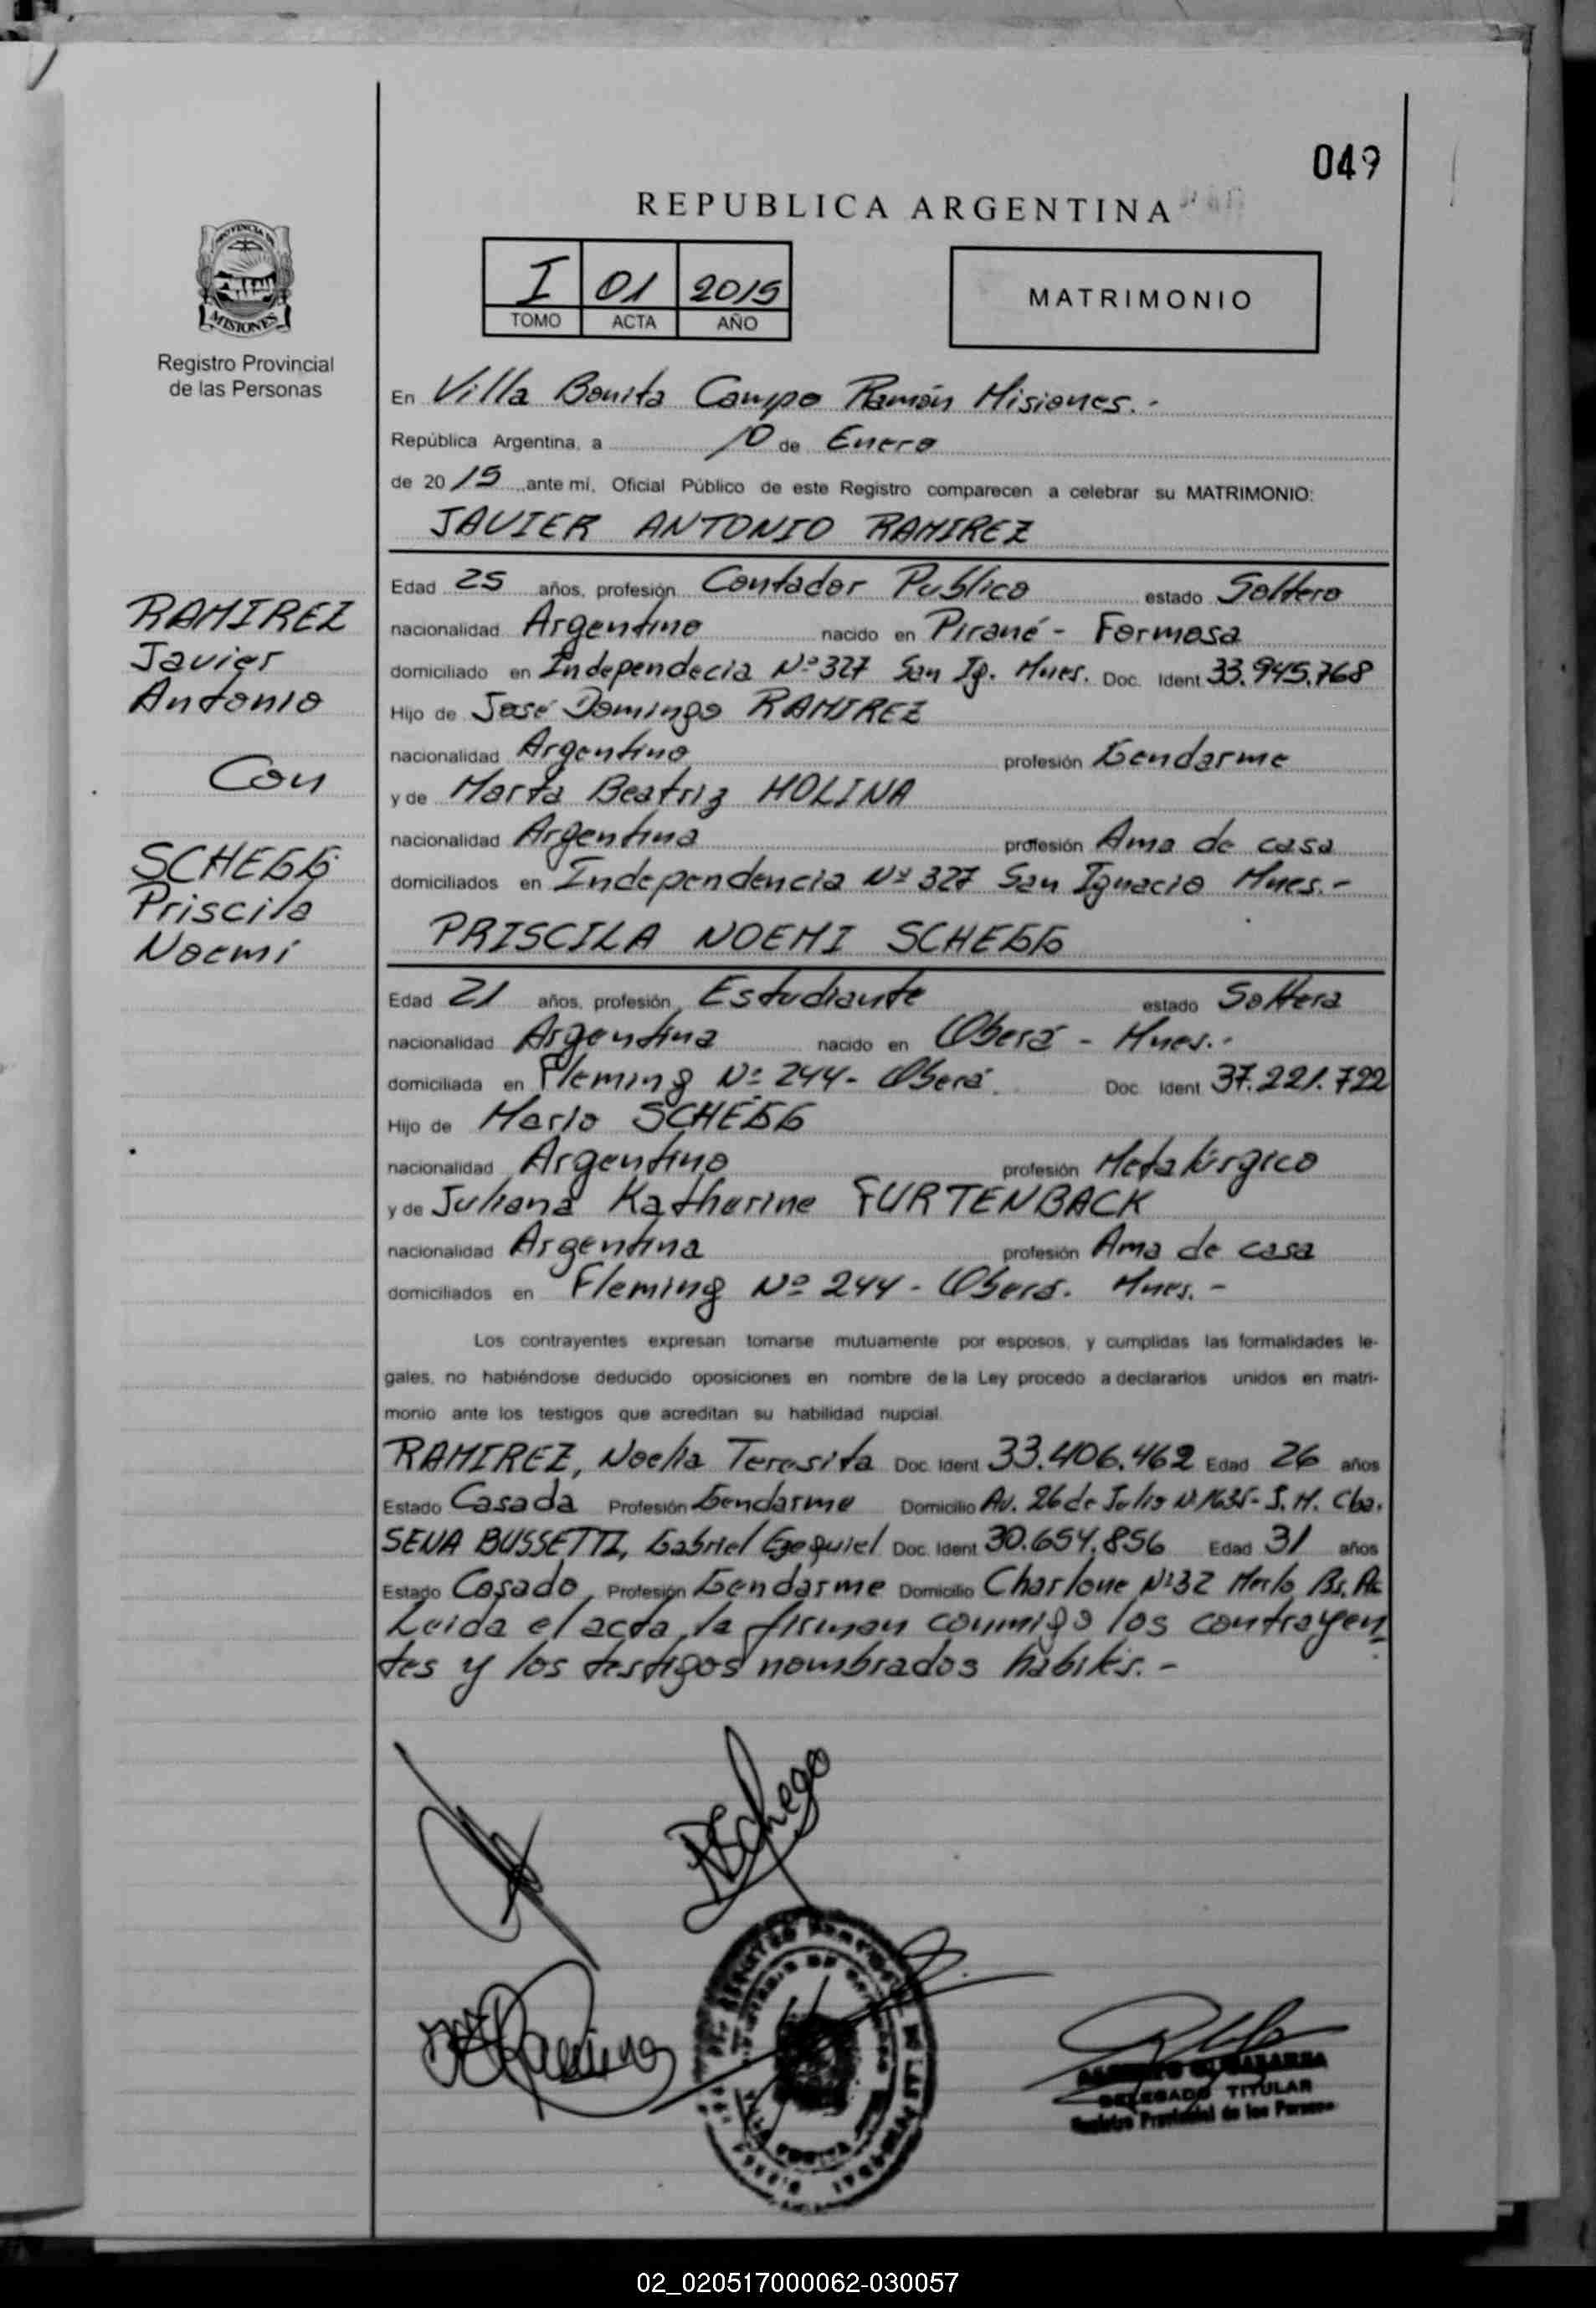 049
REPUBLICA ARGENTINA
PROVINCIA DE
MISIONES
Registro Provincial
de las Personas
I 01 2015
TOMO ACTA AÑO
MATRIMONIO
En Villa Bonita Campo Ramón Misiones.-
República Argentina, a 10 de Enero
de 20 15 ante mí, Oficial Público de este Registro comparecen a celebrar su MATRIMONIO:
JAVIER ANTONIO RAMIREZ
RAMIREZ
Javier
Antonio
Con
SCHEGG
Priscila
Noemi
Edad 25 años, profesión Contador Publico estado Soltero
nacionalidad Argentino nacido en Pirané - Formosa
domiciliado en Independecia Nº 327 San Ig. Mnes. Doc. Ident 33.945.768
Hijo de José Domingo RAMIREZ
nacionalidad Argentino profesión Gendarme
y de Marta Beatriz MOLINA
nacionalidad Argentina profesión Ama de casa
domiciliados en Independencia Nº 327 San Ignacio Mnes.-
PRISCILA NOEMI SCHEGG
Edad 21 años, profesión Estudiante estado Soltera
nacionalidad Argentina nacido en Oberá - Mnes.-
domiciliada en Fleming Nº 244- Oberá. Doc. Ident 37.221.722
Hijo de Mario SCHEGG
nacionalidad Argentino profesión Metalúrgico
y de Juliana Katharine FURTENBACK
nacionalidad Argentina profesión Ama de casa
domiciliados en Fleming Nº 244 - Oberá. Mnes.-
Los contrayentes expresan tomarse mutuamente por esposos, y cumplidas las formalidades le-
gales, no habiéndose deducido oposiciones en nombre de la Ley procedo a declararlos unidos en matri-
monio ante los testigos que acreditan su habilidad nupcial.
RAMIREZ, Noelia Teresita Doc. Ident 33.406.462 Edad 26 años
Estado Casada Profesión Gendarme Domicilio Av. 26 de Julio Nº 1635- J. M. Cba.
SENA BUSSETTI, Gabriel Ezequiel Doc. Ident 30.654.856 Edad 31 años
Estado Casado Profesión Gendarme Domicilio Charlone Nº 32 Merlo Bs. As
Leida el acta, la firman conmigo los contrayen
tes y los testigos nombrados habiles.-
DELEGADO TITULAR
Registro Provincial de las Personas
02_020517000062-030057